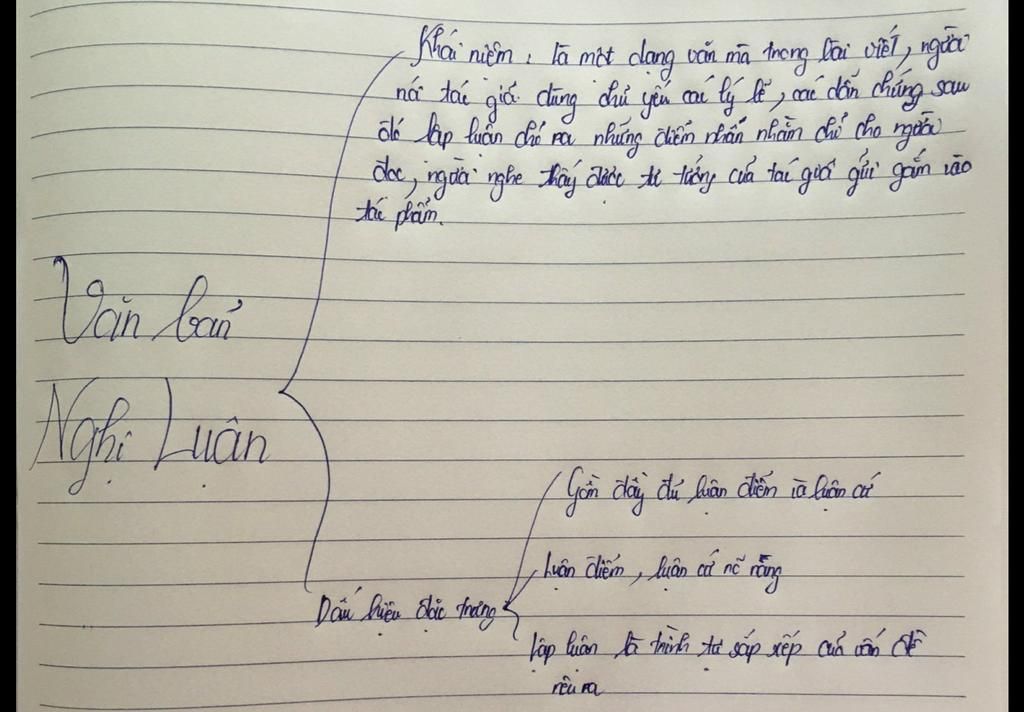 Khái niệm : là một dạng văn mà trong bài viết, người
nói tác giả dùng chủ yếu các lý lẽ, các dẫn chứng sau
đó lập luận chỉ ra những điểm nhấn nhằm chỉ cho người
đọc, người nghe thấy được tư tưởng của tác giả gửi gắm vào
tác phẩm.
Văn bản
Nghị Luận
Gồm đầy đủ luận điểm và luận cứ
Luận điểm, luận cứ rõ ràng
Dấu hiệu đặc trưng
lập luận là trình tự sắp xếp của vấn đề
nêu ra